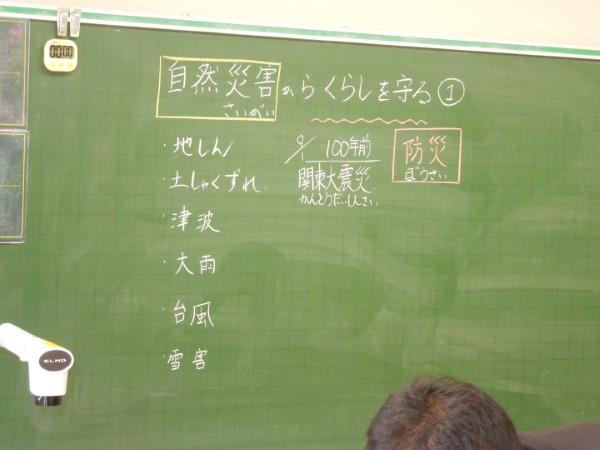 自然災害からくらしを守る①
さいがい
・地しん
・土しゃくずれ
・津波
・大雨
・台風
・雪害
9/1 100年前
関東大震災
かんとうだいしんさい
防災
ぼうさい
00:00
ELMO